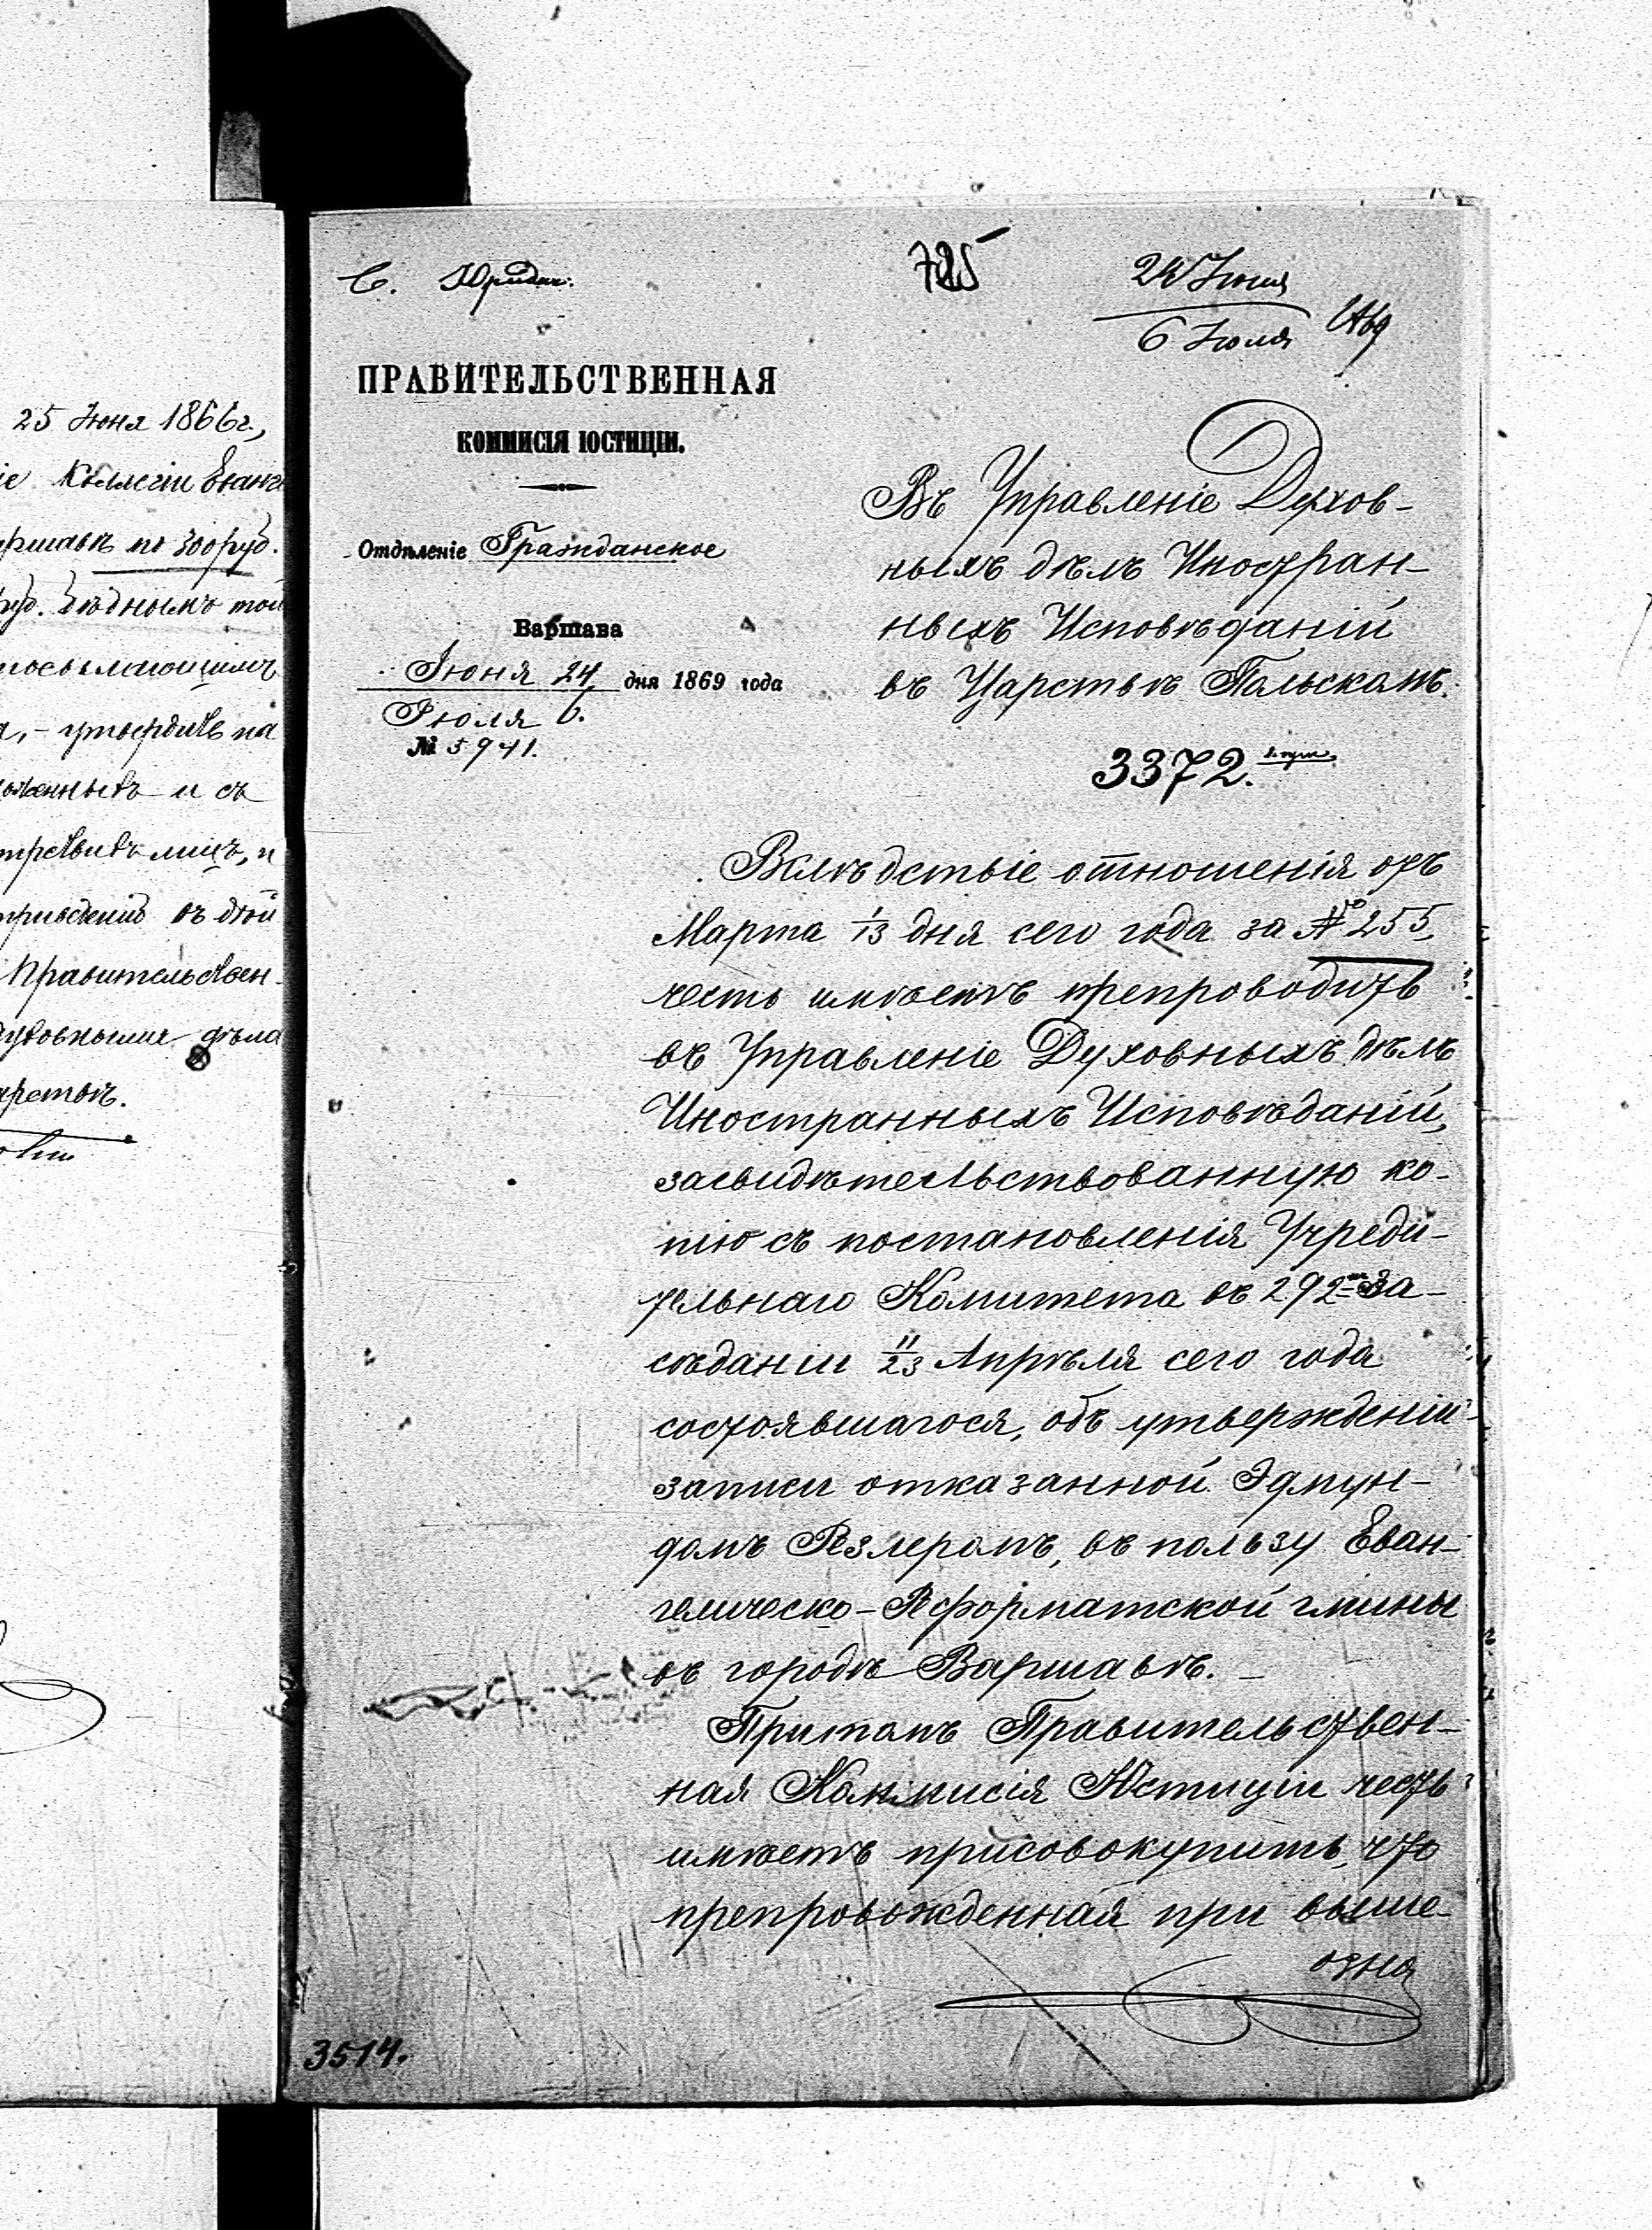 25 Іюня 1866 г.,
Коллегіи Еванге
по 300 руб.
руб. бѣднымъ той
и съ
лицъ, и
въ дѣй
Правительствен-
духовными дѣла
С. Юридич:
725
24 Іюня
6 Іюля
ПРАВИТЕЛЬСТВЕННАЯ
КОММИСІЯ ЮСТИЦІИ.
Отдѣленіе Гражданское
Варшава
Іюня 24 дня 1869 года
Іюля 6.
№ 5941.
Въ Управленіе Духов-
ныхъ дѣлъ Иностран-
ныхъ Исповѣданій
въ Царствѣ Польскомъ.
3372.
Вслѣдствіе отношенія отъ
Марта 1/13 дня сего года за № 255,
честь имѣетъ препроводить
въ Управленіе Духовныхъ дѣлъ
Иностранныхъ Исповѣданій,
засвидѣтельствованную ко-
пію съ постановленія Учреди-
тельнаго Комитета въ 292-мъ За-
сѣданіи 11/23 Апрѣля сего года
состоявшагося, объ утвержденіи
записи отказанной Эдмун-
домъ Резлеромъ, въ пользу Еван-
гелическо-Реформатской гмины
въ городѣ Варшавѣ. –
Притомъ Правительствен-
ная Коммисія Юстиціи честь
имѣетъ присовокупить, что
препровожденная при выше-
озна
3514.